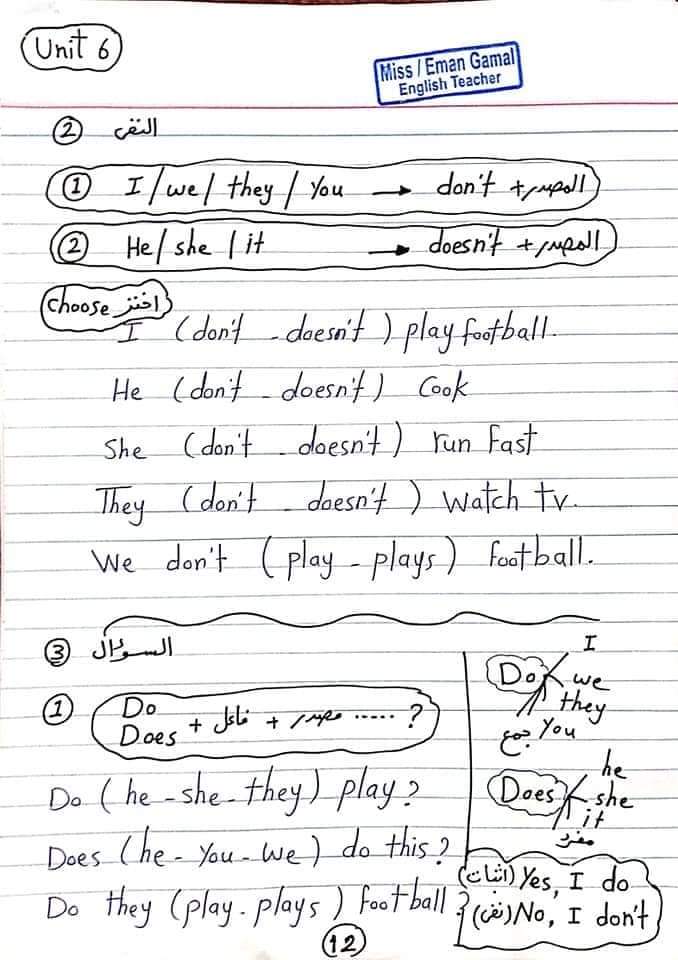 Unit 6
Miss / Eman Gamal
English Teacher
② النفى
① I / we / they / You → don't + المصدر
② He / she / it → doesn't + المصدر
Choose اختر
I (don't - doesn't) play football.
He (don't - doesn't) Cook
She (don't - doesn't) run fast
They (don't - doesn't) watch tv.
We don't (play - plays) football.
③ السؤال
① Do
Does + فاعل + مصدر ..... ?
Do (he - she - they) play?
Does (he - You - we) do this?
Do they (play - plays) football?
Do I
we
they
You
جمع
Does he
she
it
مفرد
(اثبات) Yes, I do
(نفى) No, I don't
12